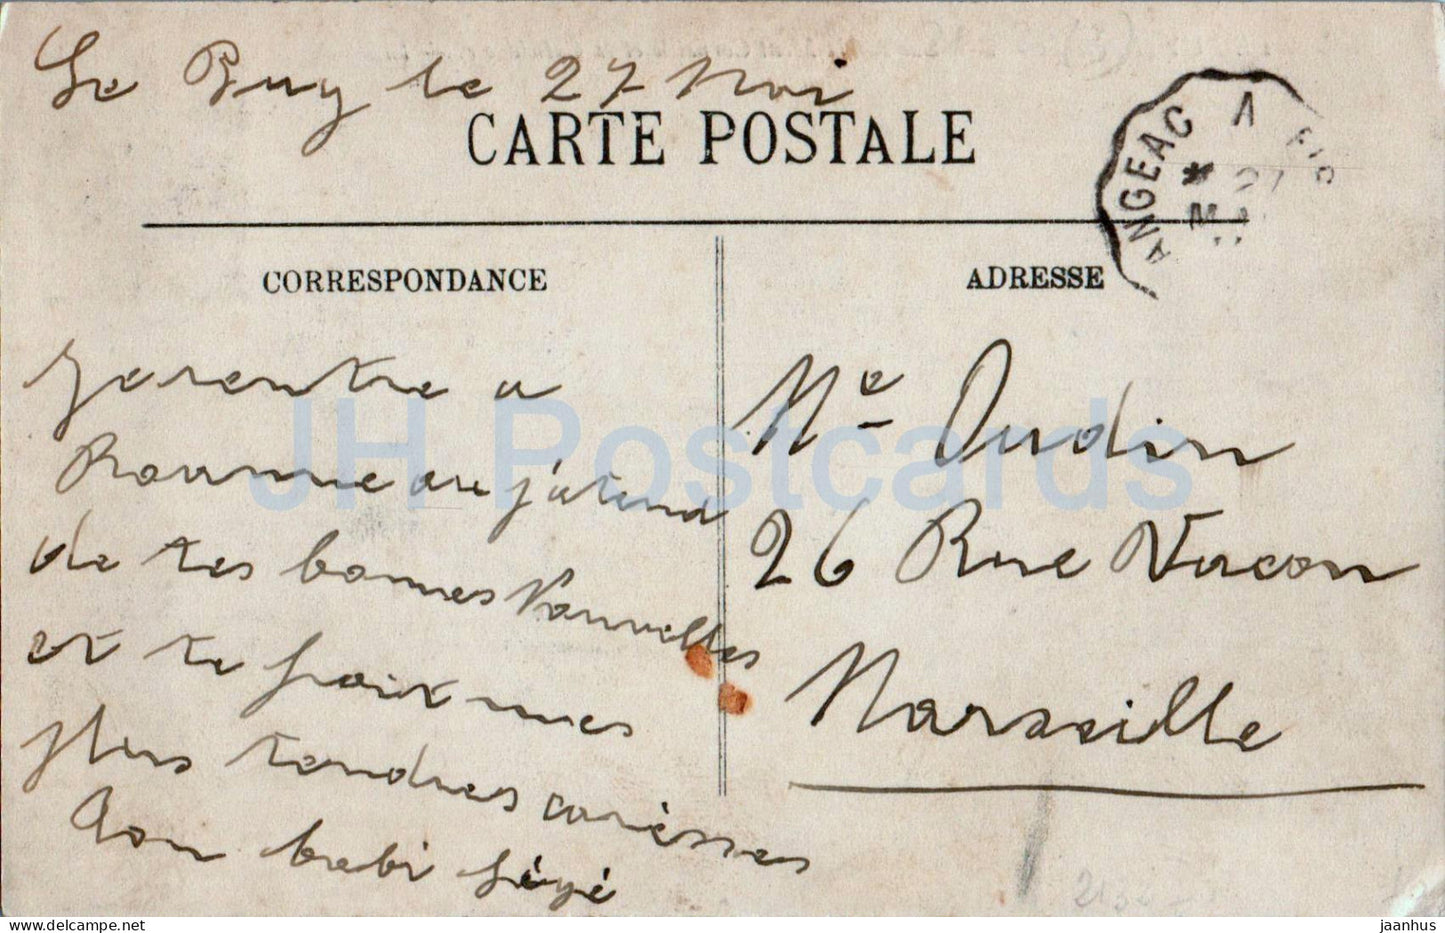 Le Puy le 27 Mai
CARTE POSTALE
ANGEAC A
CORRESPONDANCE
ADRESSE
Je rentre a
Roanne ou j'atend
de tes bonnes Nouvelles
et te fait mes
plus tendres carèsses
Ton bebi
Me Oudin
26 Rue Vacon
Marseille
JH Postcards
jaanhus